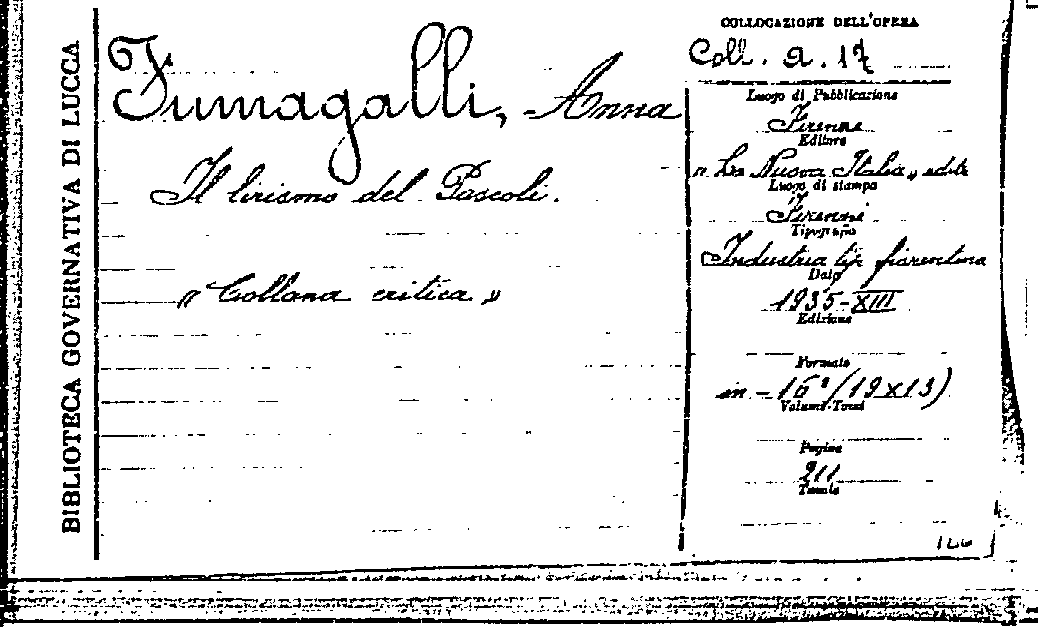 BIBLIOTECA GOVERNATIVA DI LUCCA
Fumagalli, Anna
Il lirismo del Pascoli.
« Collana critica »
COLLOCAZIONE DELL'OPERA
Coll. a. 17
Luogo di Pubblicazione
Firenze
Editore
"La Nuova Italia„ edit.
Luogo di stampa
Firenze
Tipografio
Industria tip. fiorentina
Data
1935-XIII
Edizione
Formato
in-16°/(19x13)
Volume-Tomi
Pagine
211
Tavole